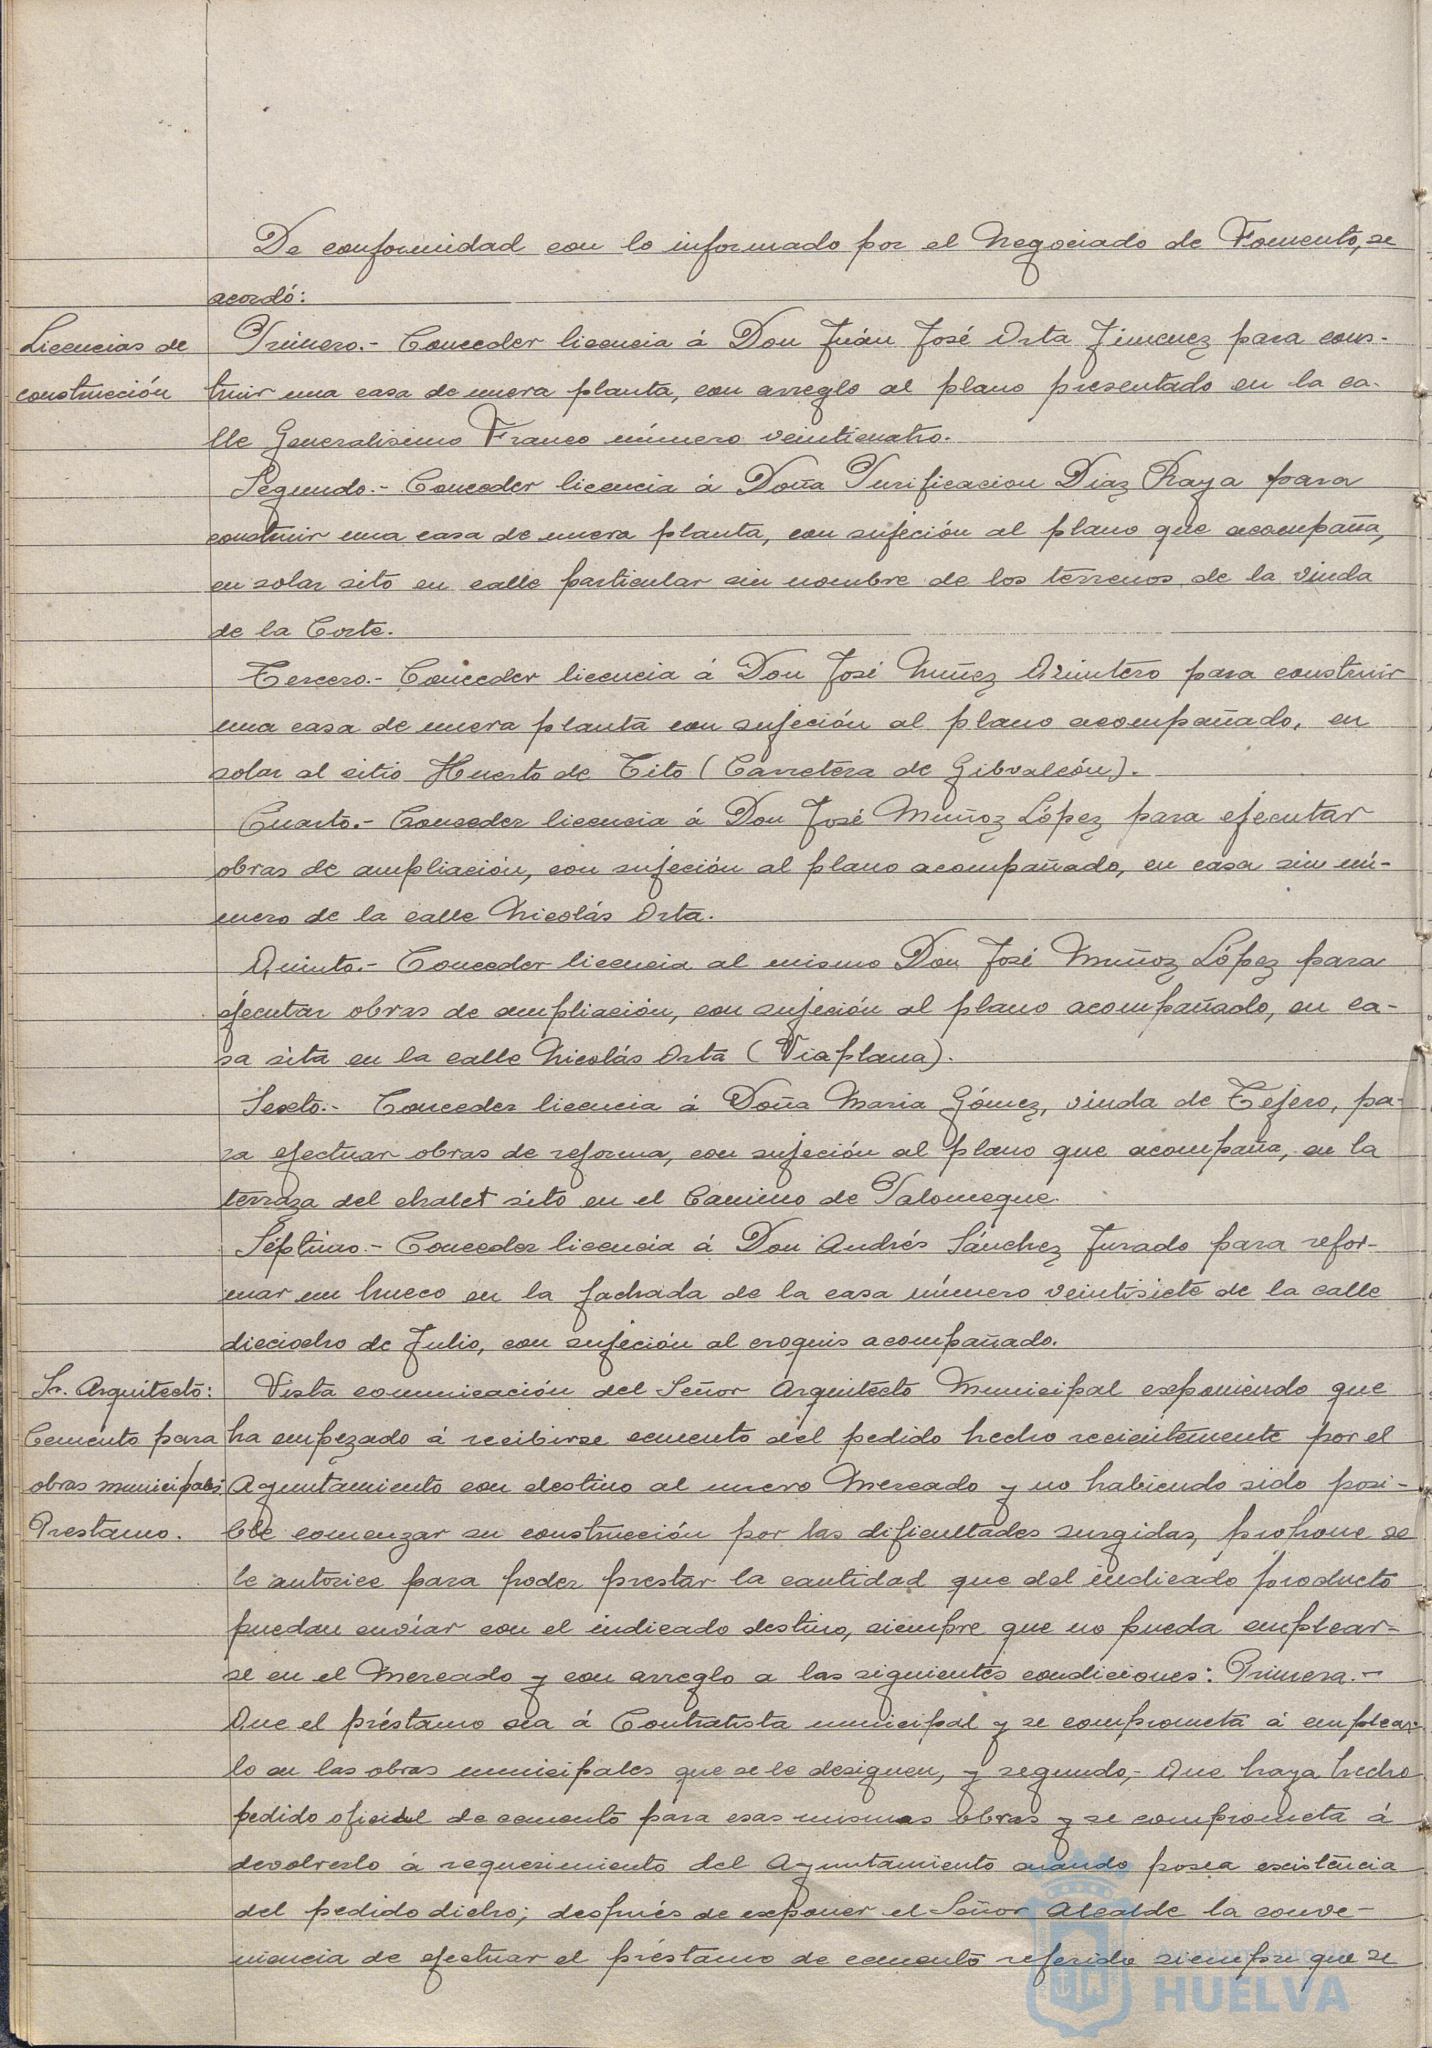 De conformidad con lo informado por el Negociado de Fomento, se
acordó:
Licencias de
construcción
Primero.- Conceder licencia á Don Juán José Orta Jimenez para cons-
truir una casa de nueva planta, con arreglo al plano presentado en la ca-
lle Generalisimo Franco número veinticuatro.
Segundo.- Conceder licencia á Doña Purificacion Diaz Raya para
construir una casa de nueva planta, con sujeción al plano que acompaña,
en solar sito en calle particular sin nombre de los terrenos de la viuda
de la Corte.
Tercero.- Conceder licencia á Don José Núñez Quintero para construir
una casa de nueva planta con sujeción al plano acompañado, en
solar al sitio Huerto de Tito (Carretera de Gibraleón).
Cuarto.- Conceder licencia á Don José Muñoz López para ejecutar
obras de ampliación, con sujeción al plano acompañado, en casa sin nú-
mero de la calle Nicolás Orta.
Quinto.- Conceder licencia al mismo Don José Muñoz López para
ejecutar obras de ampliación, con sujeción al plano acompañado, en ca-
sa sita en la calle Nicolás Orta (Viaplana).
Sexto.- Conceder licencia á Doña Maria Gómez, viuda de Tejero, pa-
ra efectuar obras de reforma, con sujeción al plano que acompaña, en la
terraza del chalet sito en el Camino de Palomeque.
Séptimo.- Conceder licencia á Don Andrés Sánchez Jurado para refor-
mar un hueco en la fachada de la casa número veintisiete de la calle
dieciocho de Julio, con sujeción al croquis acompañado.
Sr. Arquitecto:
Cemento para
obras municipales.
Prestamo.
Vista comunicación del Señor Arquitecto Municipal exponiendo que
ha empezado á recibirse cemento del pedido hecho recientemente por el
Ayuntamiento con destino al nuevo Mercado y no habiendo sido posi-
ble comenzar su construcción por las dificultades surgidas, propone se
le autorice para poder prestar la cantidad que del indicado producto
puedan enviar con el indicado destino, siempre que no pueda emplear-
se en el Mercado y con arreglo a las siguientes condiciones: Primera.-
Que el préstamo sea á Contratista municipal y se comprometa á emplear-
lo en las obras municipales que se le designen, y segundo,- Que haya hecho
pedido oficial de cemento para esas mismas obras y se comprometa á
devolverlo á requerimiento del Ayuntamiento cuando posea existencia
del pedido dicho; después de exponer el Señor Alcalde la conve-
niencia de efectuar el préstamo de cemento referido siempre que se
Ayuntamiento de
HUELVA